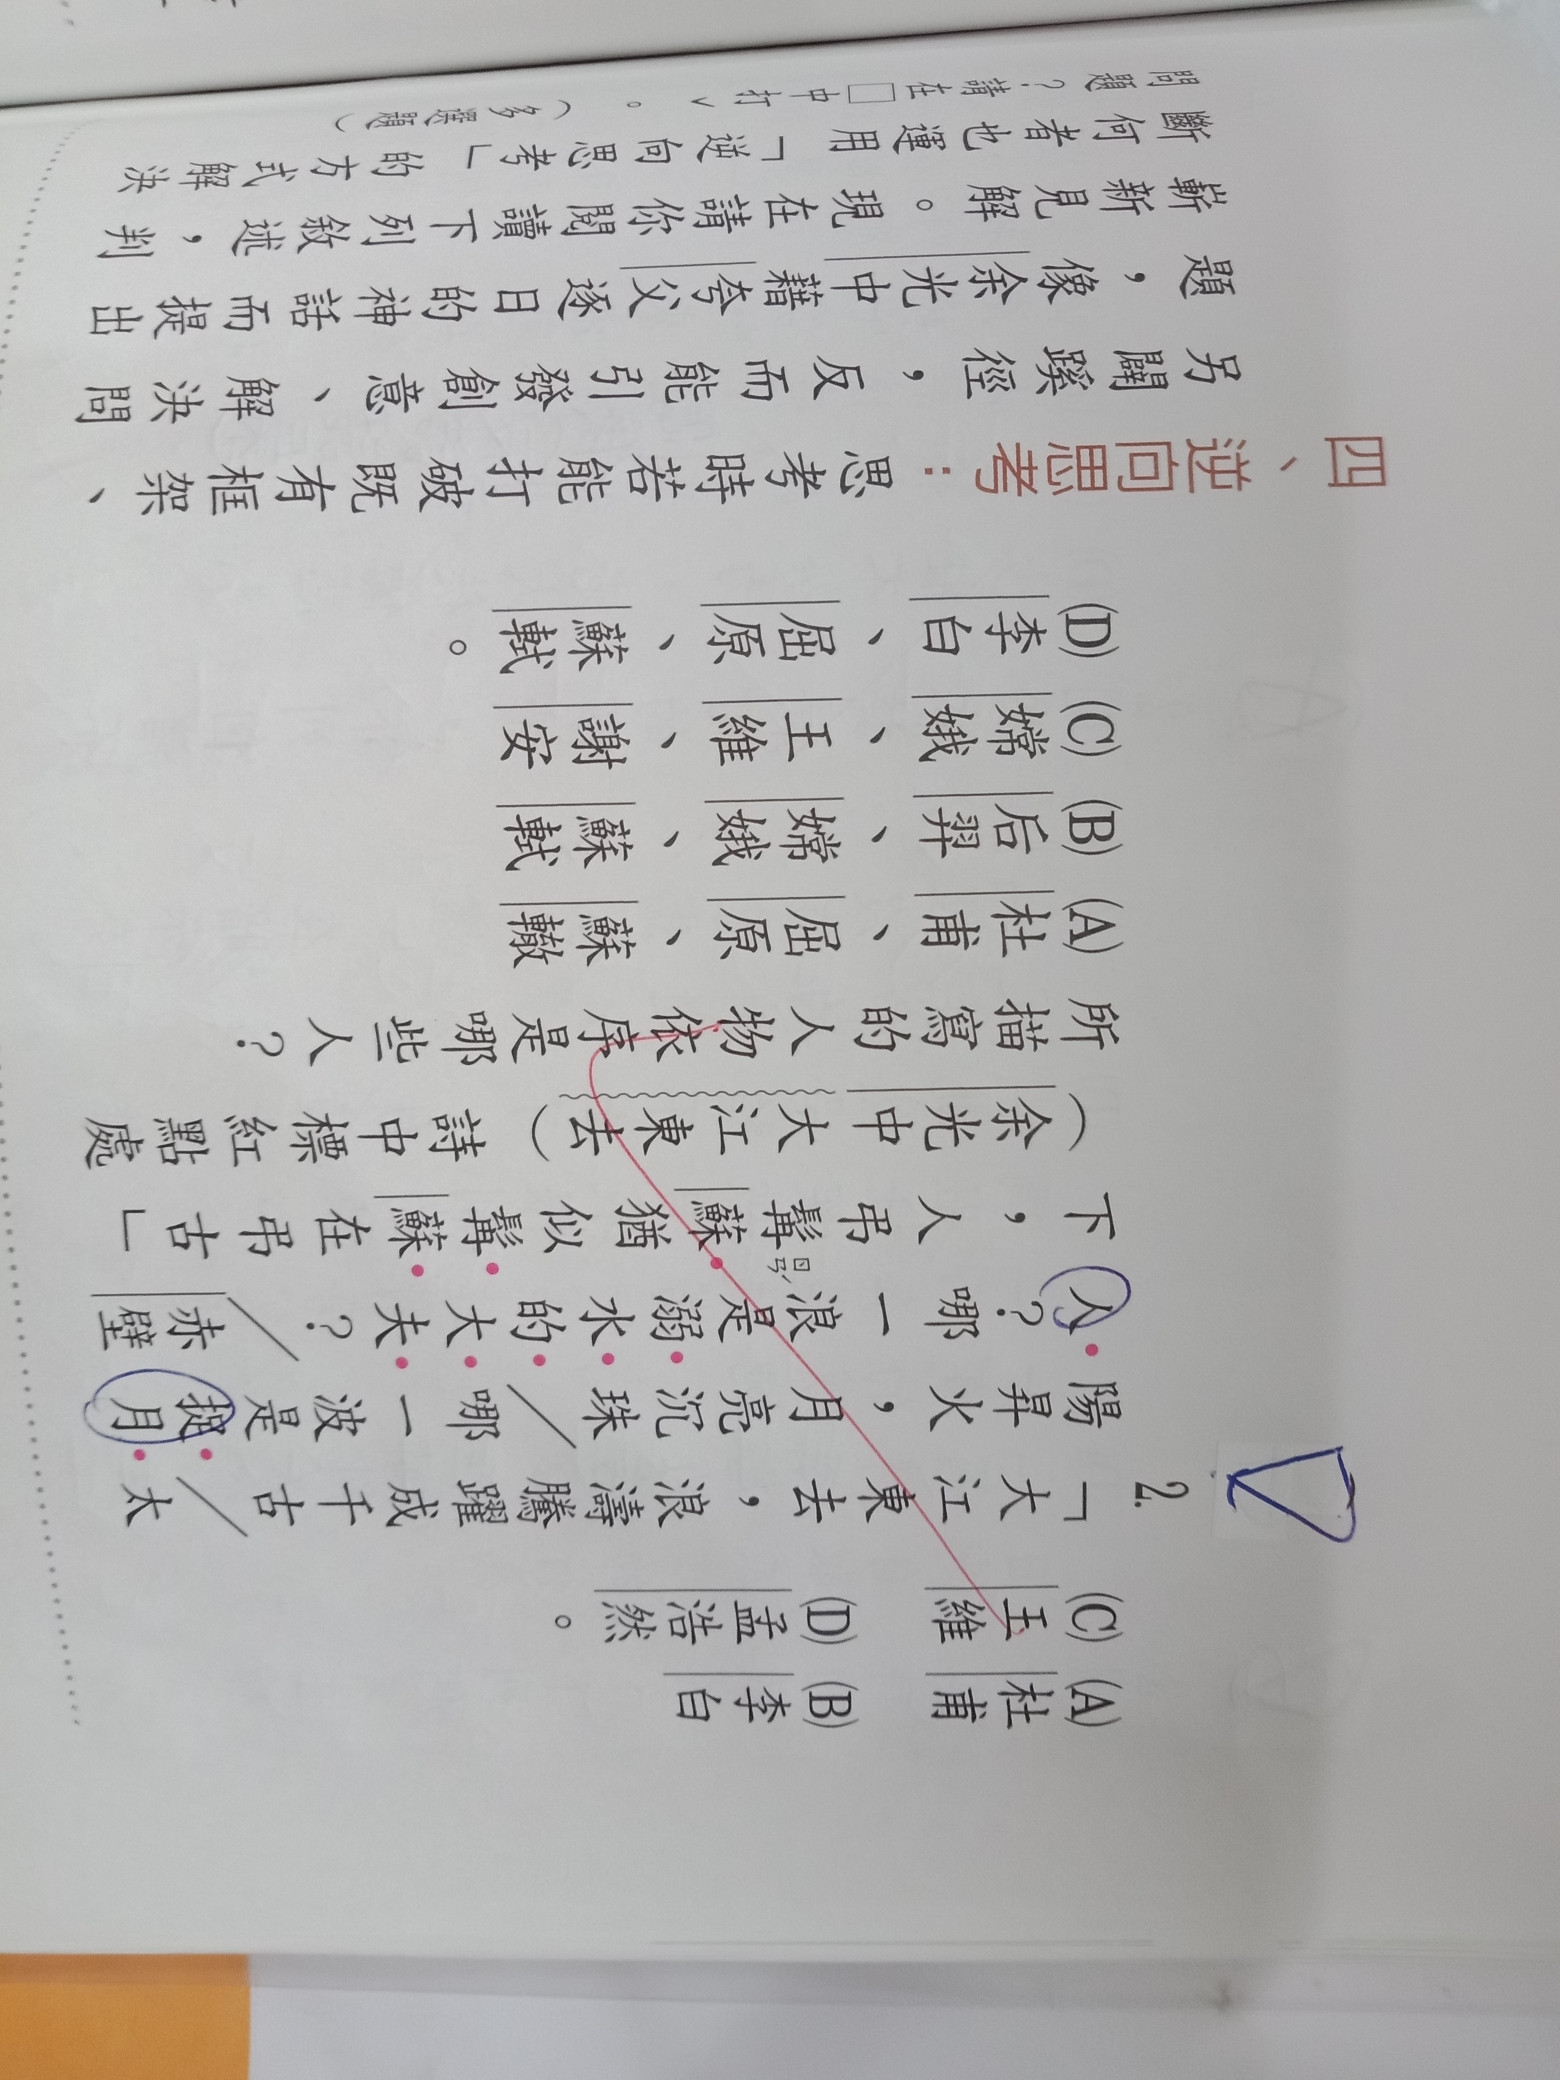 (A)杜甫　(B)李白
(C)王維　(D)孟浩然。
2.「大江東去，浪濤騰躍成千古／太
陽昇火，月亮沉珠／哪一波是捉月
人？哪一浪是溺水的大夫？／赤壁
下，人弔髯蘇猶似髯蘇在弔古」
（余光中大江東去）詩中標紅點處
所描寫的人物依序是哪些人？
(A)杜甫、屈原、蘇轍
(B)后羿、嫦娥、蘇軾
(C)嫦娥、王維、謝安
(D)李白、屈原、蘇軾。
四、逆向思考：思考時若能打破既有框架、
另闢蹊徑，反而能引發創意、解決問
題，像余光中藉夸父逐日的神話而提出
嶄新見解。現在請你閱讀下列敘述，判
斷何者也運用「逆向思考」的方式解決
問題？請在□中打ˇ。（多選題）